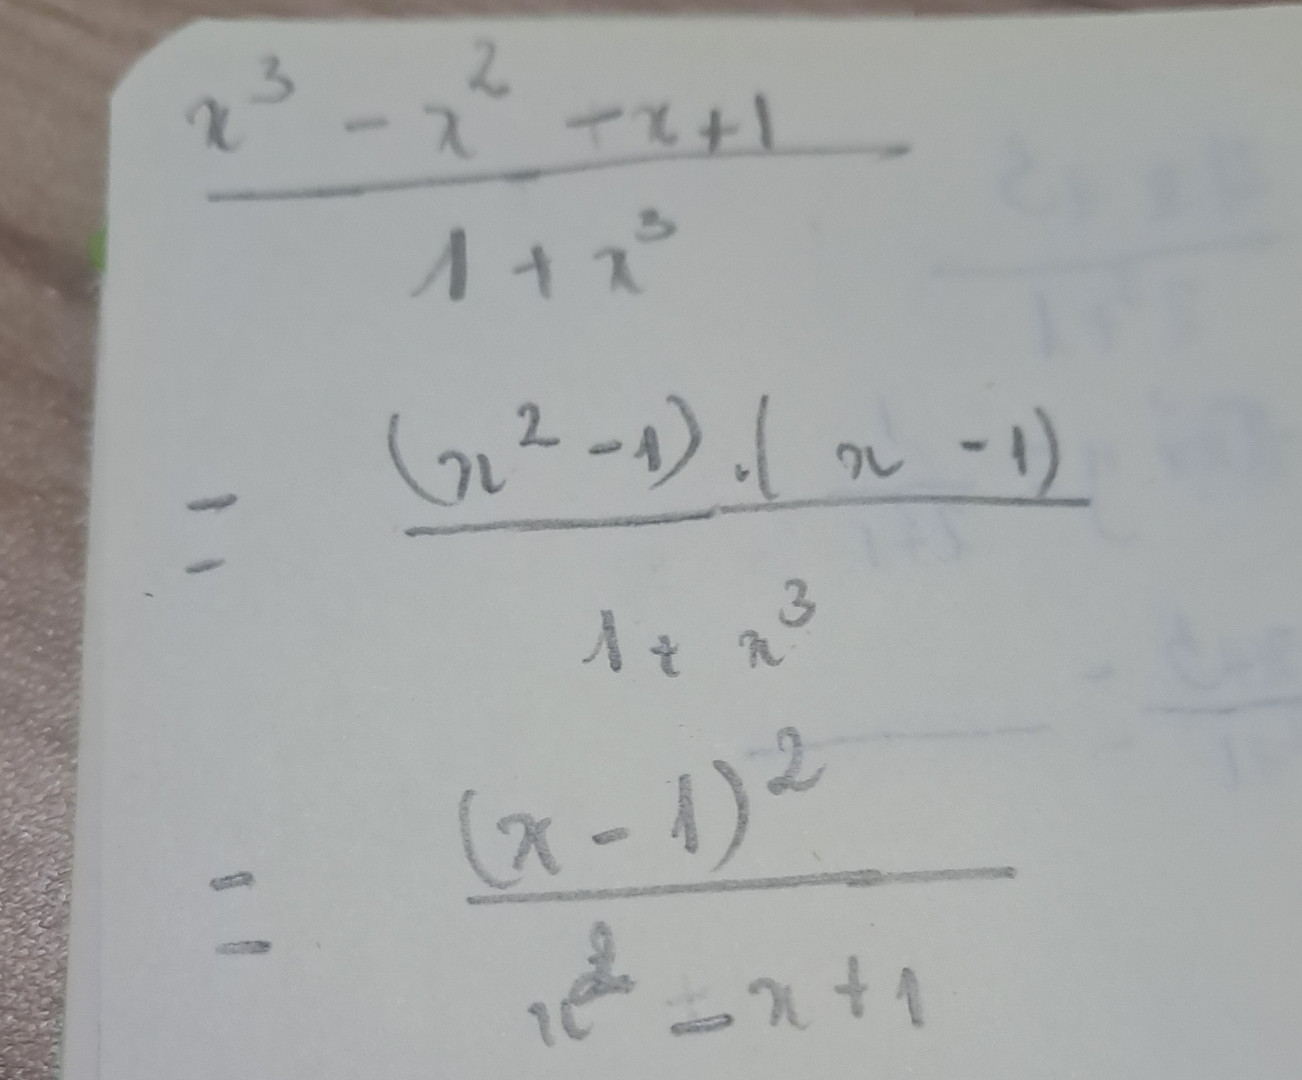 x³ - x² - x + 1
1 + x³
= (x² - 1) . (x - 1)
1 + x³
= (x - 1)²
x² - x + 1